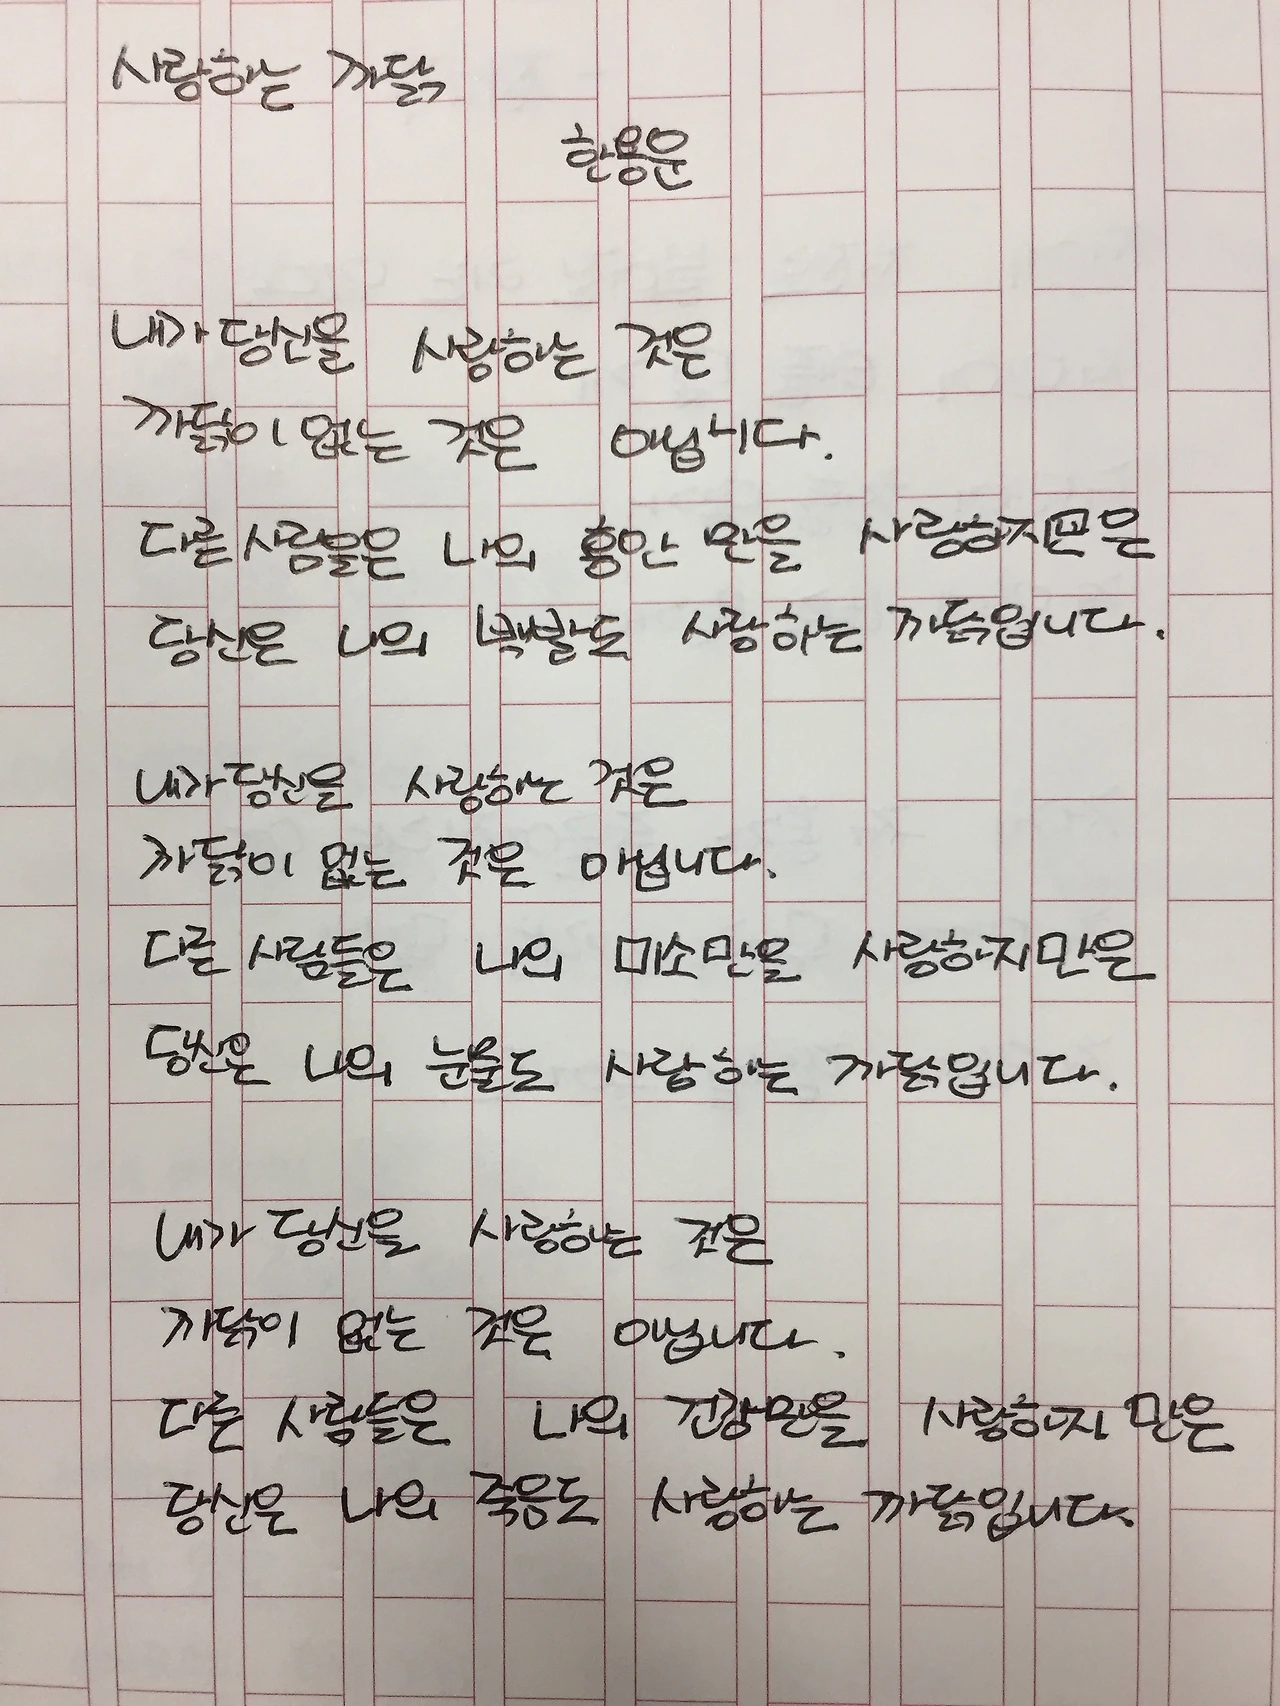 사랑하는 까닭
한용운
내가 당신을 사랑하는 것은
까닭이 없는 것은 아닙니다.
다른 사람들은 나의 홍안 만을 사랑하지만은
당신은 나의 백발도 사랑하는 까닭입니다.
내가 당신을 사랑하는 것은
까닭이 없는 것은 아닙니다.
다른 사람들은 나의 미소만을 사랑하지만은
당신은 나의 눈물도 사랑하는 까닭입니다.
내가 당신을 사랑하는 것은
까닭이 없는 것은 아닙니다.
다른 사람들은 나의 건강만을 사랑하지 만은
당신은 나의 죽음도 사랑하는 까닭입니다.